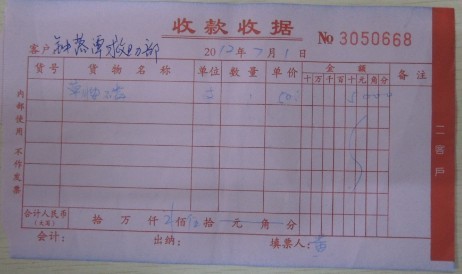 收款收据 No 3050668
客户 钟落潭救助部 2012年7月1日
货号 货物名称 单位 数量 单价 金额 备注
十万千百十元角分
内部使用 不作发票
二客户
合计人民币 拾 万 仟 佰 拾 元 角 分
(大写)
会计: 出纳: 填票人: 黄